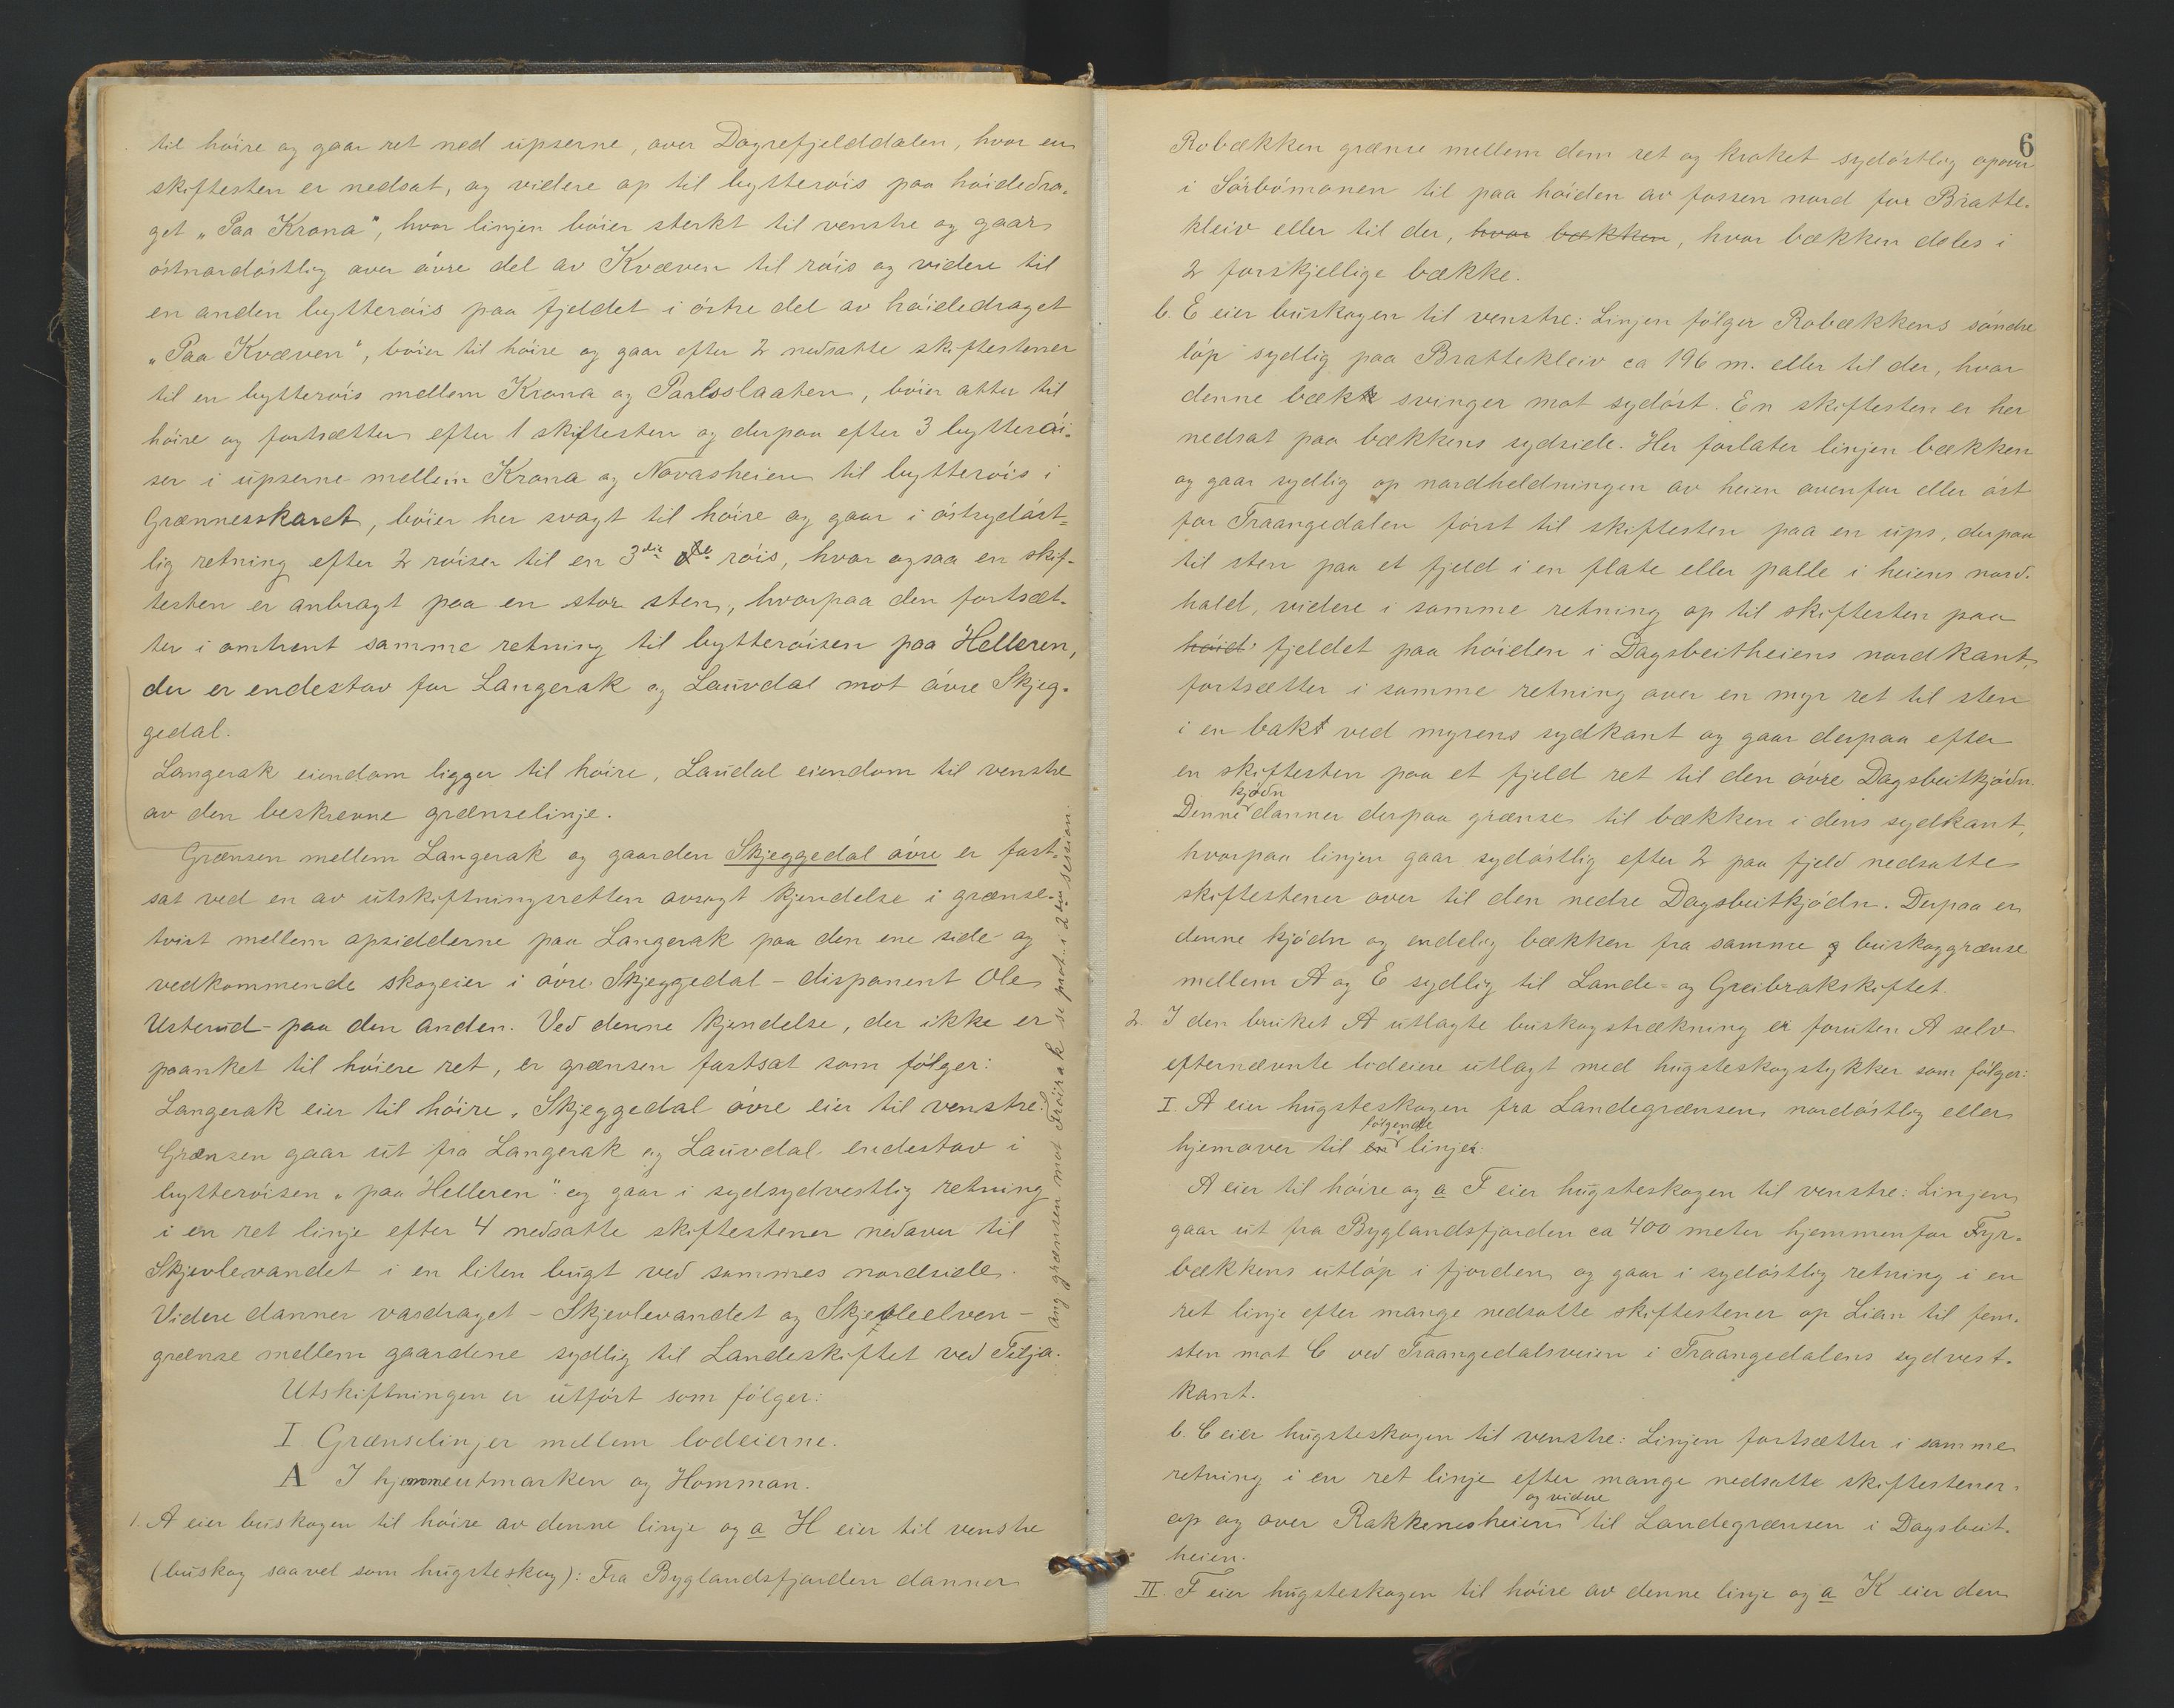 til höire og gaar ret ned upserne, over Dagrefjelddalen, hvor en
skiftesten er nedsat, og videre op til bytteröis paa höidedra-
get „Paa Krona", hvor linjen böier sterkt til venstre og gaar
östnordöstlig over övre del av Kvæven til röis og videre til
en anden bytteröis paa fjeldet i östre del av höidedraget
„Paa Kvæven", böier til höire og gaar efter 2 nedsatte skiftestener
til en bytteröis mellem Krona og Paalsslaaten, böier atter til
höire og fortsætter efter 1 skiftesten og derpaa efter 3 bytteröi-
ser i upserne mellem Krona og Novasheien til bytteröis i
Grænnesskaret, böier her svagt til höire og gaar i östsydöst-
lig retning efter 2 röiser til en 3die röis, hvor ogsaa en skif-
testen er anbragt paa en stor sten, hvorpaa den fortsæt-
ter i omtrent samme retning til bytteröisen paa Helleren,
der er endestav for Langerak og Lauvdal mot övre Skjeg-
gedal.
Langerak eiendom ligger til höire, Laudal eiendom til venstre
av den beskrevne grænselinje.
Grænsen mellem Langerak og gaarden Skjeggedal övre er fast-
sat ved en av utskiftningsretten avsagt kjendelse i grænse-
tvist mellem opsidderne paa Langerak paa den ene side og
vedkommende skogeier i övre Skjeggedal – disponent Ole
Usterud – paa den anden. Ved denne kjendelse, der ikke er
paanket til höiere ret, er grænsen fastsat som fölger:
Langerak eier til höire, Skjeggedal övre eier til venstre:
Grænsen gaar ut fra Langerak og Lauvdal endestav i
bytteröisen „paa Helleren" og gaar i sydsydvestlig retning
i en ret linje efter 4 nedsatte skiftestener nedover til
Skjevlevandet i en liten bugt ved sammes nordside.
Videre danner vasdraget – Skjevlevandet og Skjevleelven –
grænse mellem gaardene sydlig til Landeskiftet ved Tilja.
Utskiftningen er utfört som fölger:
I Grænselinjer mellem lodeierne.
A I hjemmeutmarken og Homman.
1. A eier buskogen til höire av denne linje og a H eier til venstre
(buskog saavel som hugsteskog): Fra Byglandsfjorden danner
Ang. grænsen mot Fröirak se prot. i 2den session.
6
Robækken grænse mellem dem ret og kroket sydöstlig opover
i Sörbömonen til paa höiden av fossen nord for Bratte-
kleiv eller til der, hvor bækken, hvor bækken deles i
2 forskjellige bække.
b. E eier buskogen til venstre: Linjen fölger Robækkens söndre
löp sydlig paa Brattekleiv ca 196 m. eller til der, hvor
denne bæk svinger mot sydöst. En skiftesten er her
nedsat paa bækkens sydside. Her forlater linjen bækken
og gaar sydlig op nordheldningen av heien ovenfor eller öst
for Traangedalen först til skiftesten paa en ups, derpaa
til sten paa et fjeld i en flate eller palle i heiens nord-
hald, videre i samme retning op til skiftesten paa
höid fjeldet paa höiden i Dagsbeitheiens nordkant,
fortsætter i samme retning over en myr ret til sten
i en bakt ved myrens sydkant og gaar derpaa efter
en skiftesten paa et fjeld ret til den övre Dagsbeitkjödn.
Denne kjödn danner derpaa grænse til bækken i dens sydkant,
hvorpaa linjen gaar sydöstlig efter 2 paa fjeld nedsatte
skiftestener over til den nedre Dagsbeitkjödn. Derpaa er
denne kjödn og endelig bækken fra samme buskoggrænse
mellem A og E sydlig til Lande- og Greibrokskiftet.
2. I den bruket A utlagte buskogstrækning er foruten A selv
efternævnte lodeiere utlagt med hugsteskogstykker som fölger:
I. A eier hugsteskogen fra Landegrænsen nordöstlig eller
hjemover til en følgende linje:
A eier til höire og a F eier hugsteskogen til venstre: Linjen
gaar ut fra Byglandsfjorden ca 400 meter hjemmenfor Fyr-
bækkens utlöp i fjorden og gaar i sydöstlig retning i en
ret linje efter mange nedsatte skiftestener op Lian til fem-
sten mot C ved Traangedalsveien i Traangedalens sydvest-
kant.
b. C eier hugsteskogen til venstre: Linjen fortsætter i samme
retning i en ret linje efter mange nedsatte skiftestener
op og over Rakkenesheien og videre til Landegrænsen i Dagsbeit-
heien.
II. F eier hugsteskogen til höire av denne linje og a K eier den